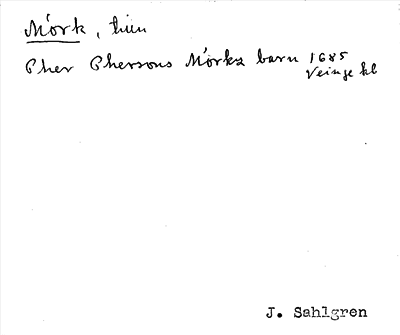 Mörk, bin
Pher Phersons Mörks barn 1685
Veinge kb
J. Sahlgren